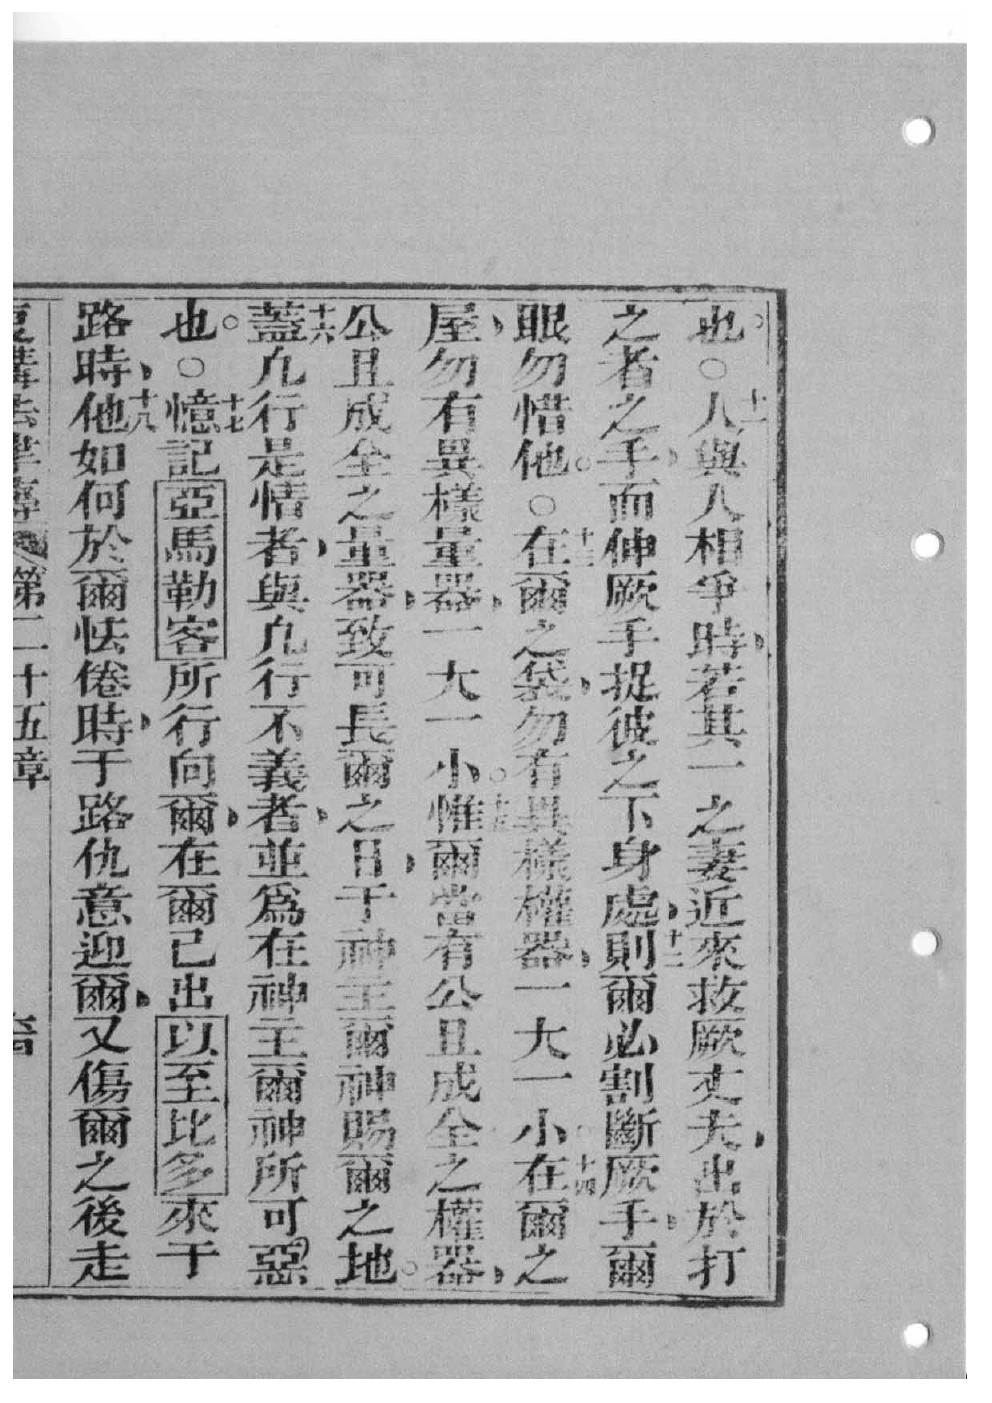 也。○十一人與人相爭時、若其一之妻近來救厥丈夫、出於打
之者之手、而伸厥手捉彼之下身處、十二則爾必割斷厥手、爾
眼勿惜他。○十三在爾之袋、勿有異樣權器、一大一小。十四在爾之
屋、勿有異樣量器、一大一小。十五惟爾當有公且成全之權器、
公且成全之量器、致可長爾之日、于神主爾神賜爾之地。
十六蓋凡行是情者、與凡行不義者、並爲在神主爾神所可惡
也。○十七憶記亞馬勒客所行向爾、在爾已出以至比多來于
路時、十八他如何於爾怯倦時、于路仇意迎爾、又傷爾之後走
復講法律傳 第二十五章